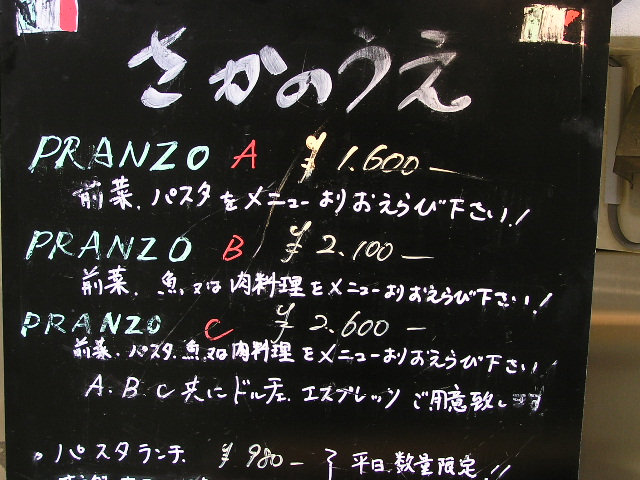 さかのうえ
PRANZO A ¥1.600-
前菜、パスタをメニューよりおえらび下さい!
PRANZO B ¥2.100-
前菜、魚、又は肉料理をメニューよりおえらび下さい!
PRANZO C ¥2.600-
前菜、パスタ、魚、又は肉料理をメニューよりおえらび下さい!
A.B.C共にドルチェ、エスプレッソご用意致します
。パスタランチ、¥980- 平日、数量限定!!